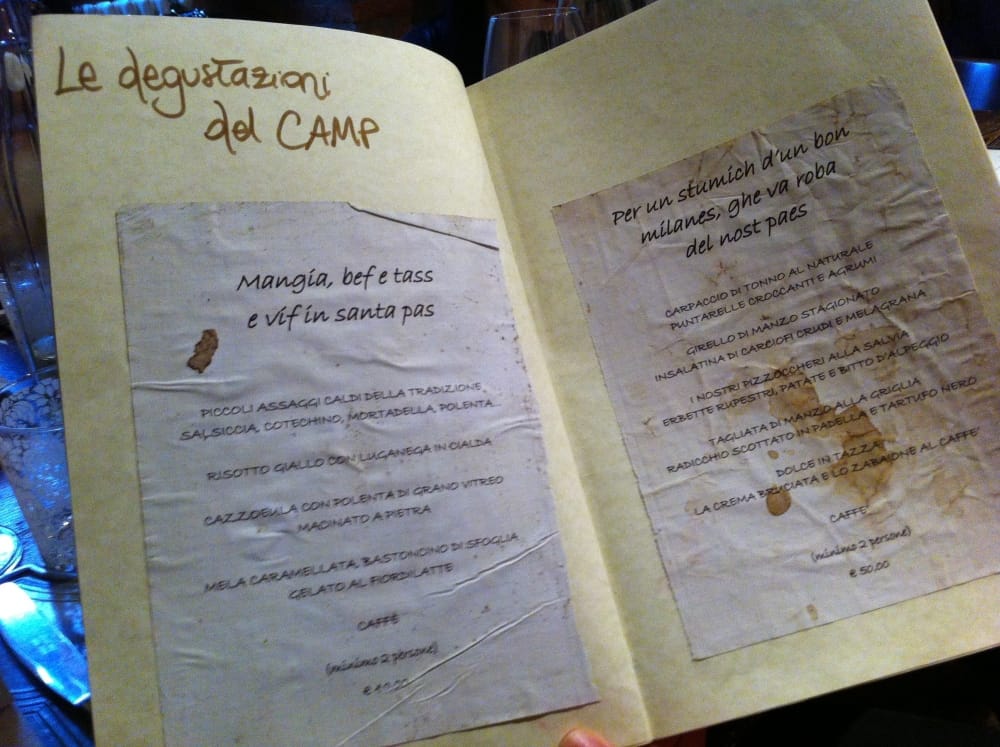 Le degustazioni
del CAMP
Mangia, bef e tass
e vif in santa pas
PICCOLI ASSAGGI CALDI DELLA TRADIZIONE
SALSICCIA, COTECHINO, MORTADELLA, POLENTA
RISOTTO GIALLO CON LUGANEGA IN CIALDA
CAZZOEULA CON POLENTA DI GRANO VITREO
MACINATO A PIETRA
MELA CARAMELLATA, BASTONCINO DI SFOGLIA
GELATO AL FIORDILATTE
CAFFÈ
(minimo 2 persone)
€
Per un stumich d'un bon
milanes, ghe va roba
del nost paes
CARPACCIO DI TONNO AL NATURALE
PUNTARELLE CROCCANTI E AGRUMI
GIRELLO DI MANZO STAGIONATO
INSALATINA DI CARCIOFI CRUDI E MELAGRANA
I NOSTRI PIZZOCCHERI ALLA SALVIA
ERBETTE RUPESTRI, PATATE E BITTO D'ALPEGGIO
TAGLIATA DI MANZO ALLA GRIGLIA
RADICCHIO SCOTTATO IN PADELLA E TARTUFO NERO
DOLCE IN TAZZA
LA CREMA BRUCIATA E LO ZABAIONE AL CAFFE'
CAFFE'
(minimo 2 persone)
€ 50,00